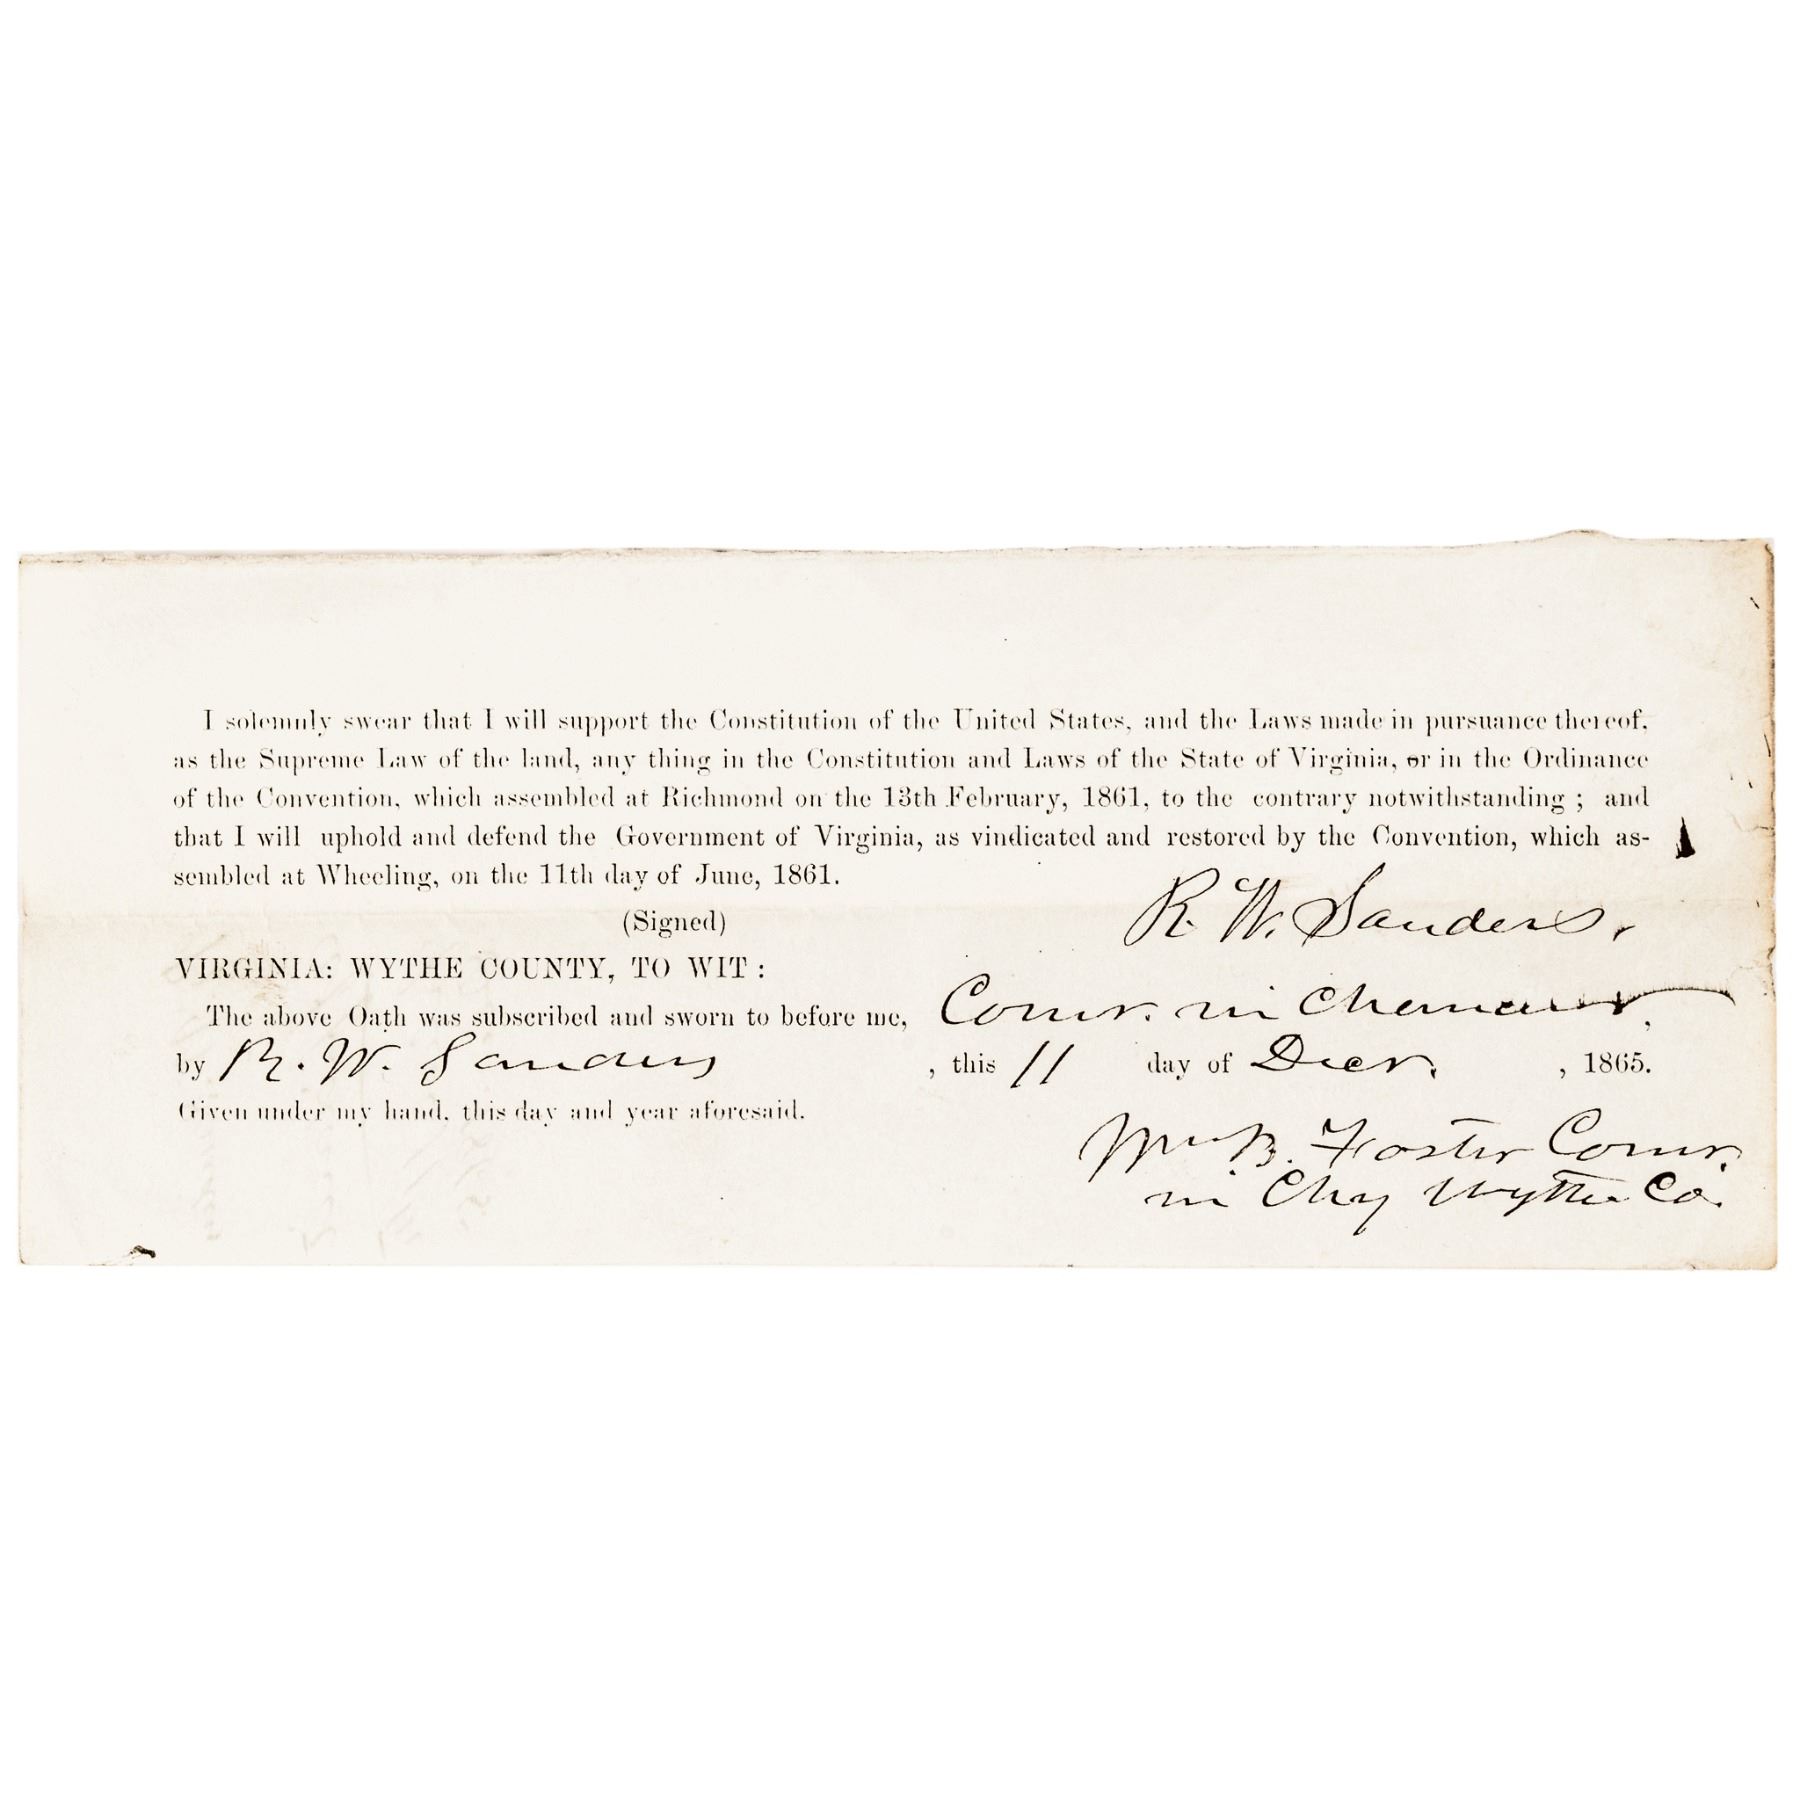 I solemnly swear that I will support the Constitution of the United States, and the Laws made in pursuance thereof,
as the Supreme Law of the land, any thing in the Constitution and Laws of the State of Virginia, or in the Ordinance
of the Convention, which assembled at Richmond on the 13th February, 1861, to the contrary notwithstanding ; and
that I will uphold and defend the Government of Virginia, as vindicated and restored by the Convention, which as-
sembled at Wheeling, on the 11th day of June, 1861.
R. W. Sanders.
(Signed)
VIRGINIA: WYTHE COUNTY, TO WIT :
The above Oath was subscribed and sworn to before me, Comr. in Chancery,
by R. W. Sanders , this 11 day of Decr. , 1865.
Given under my hand, this day and year aforesaid.
Wm B. Foster Comr.
in Chy Wythe Co.